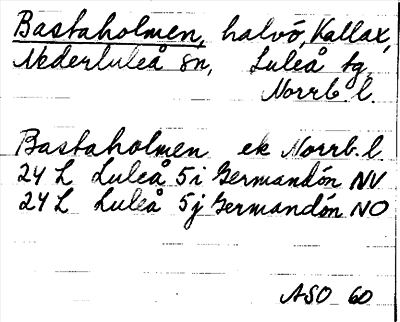 Bastaholmen, halvö, Kallax,
Nederluleå sn, Luleå tg,
Norrb. l.
Bastaholmen ek Norrb. l.
24 L Luleå 5 i Germandön NV
24 L Luleå 5 j Germandön NO
ASO 60